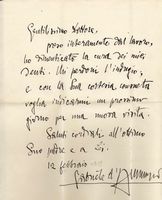 Gentilissimo Dottore,
preso interamente dal lavoro,
ho dimenticato la cura dei miei
denti. Mi perdoni l'indugio,
e con la Sua cortesia consueta
voglia indicarmi un prossimo
giorno per una nuova visita.
Saluti cordiali all'ottimo
Suo padre e a Lei.
12 febbraio
Gabriele d'Annunzio